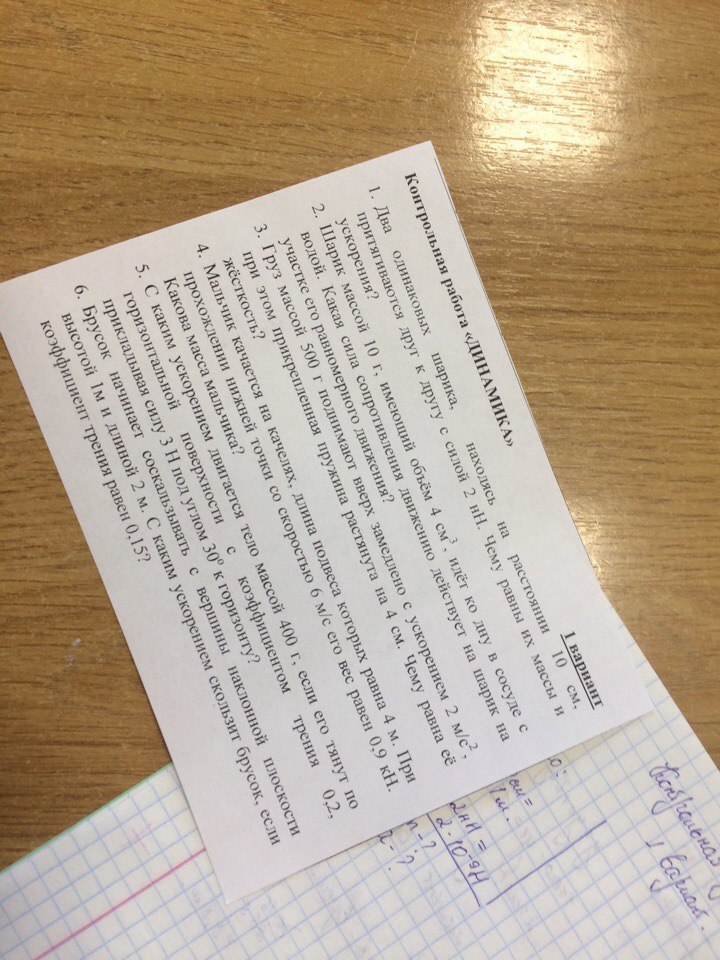 Контрольная работа «ДИНАМИКА»
1 вариант
1. Два одинаковых шарика, находясь на расстоянии 10 см.
притягиваются друг к другу с силой 2 нН. Чему равны их массы и
ускорения?
2. Шарик массой 10 г, имеющий объём 4 см³, идёт ко дну в сосуде с
водой. Какая сила сопротивления движению действует на шарик на
участке его равномерного движения?
3. Груз массой 500 г поднимают вверх замедлено с ускорением 2 м/с²,
при этом прикрепленная пружина растянута на 4 см. Чему равна её
жёсткость?
4. Мальчик качается на качелях, длина подвеса которых равна 4 м. При
прохождении нижней точки со скоростью 6 м/с его вес равен 0,9 кН.
Какова масса мальчика?
5. С каким ускорением двигается тело массой 400 г, если его тянут по
горизонтальной поверхности с коэффициентом трения 0,2,
прикладывая силу 3 Н под углом 30⁰ к горизонту?
6. Брусок начинает соскальзывать с вершины наклонной плоскости
высотой 1м и длиной 2 м. С каким ускорением скользит брусок, если
коэффициент трения равен 0,15?
Контрольная
1 вариан.
2нН =
2·10⁻⁹Н